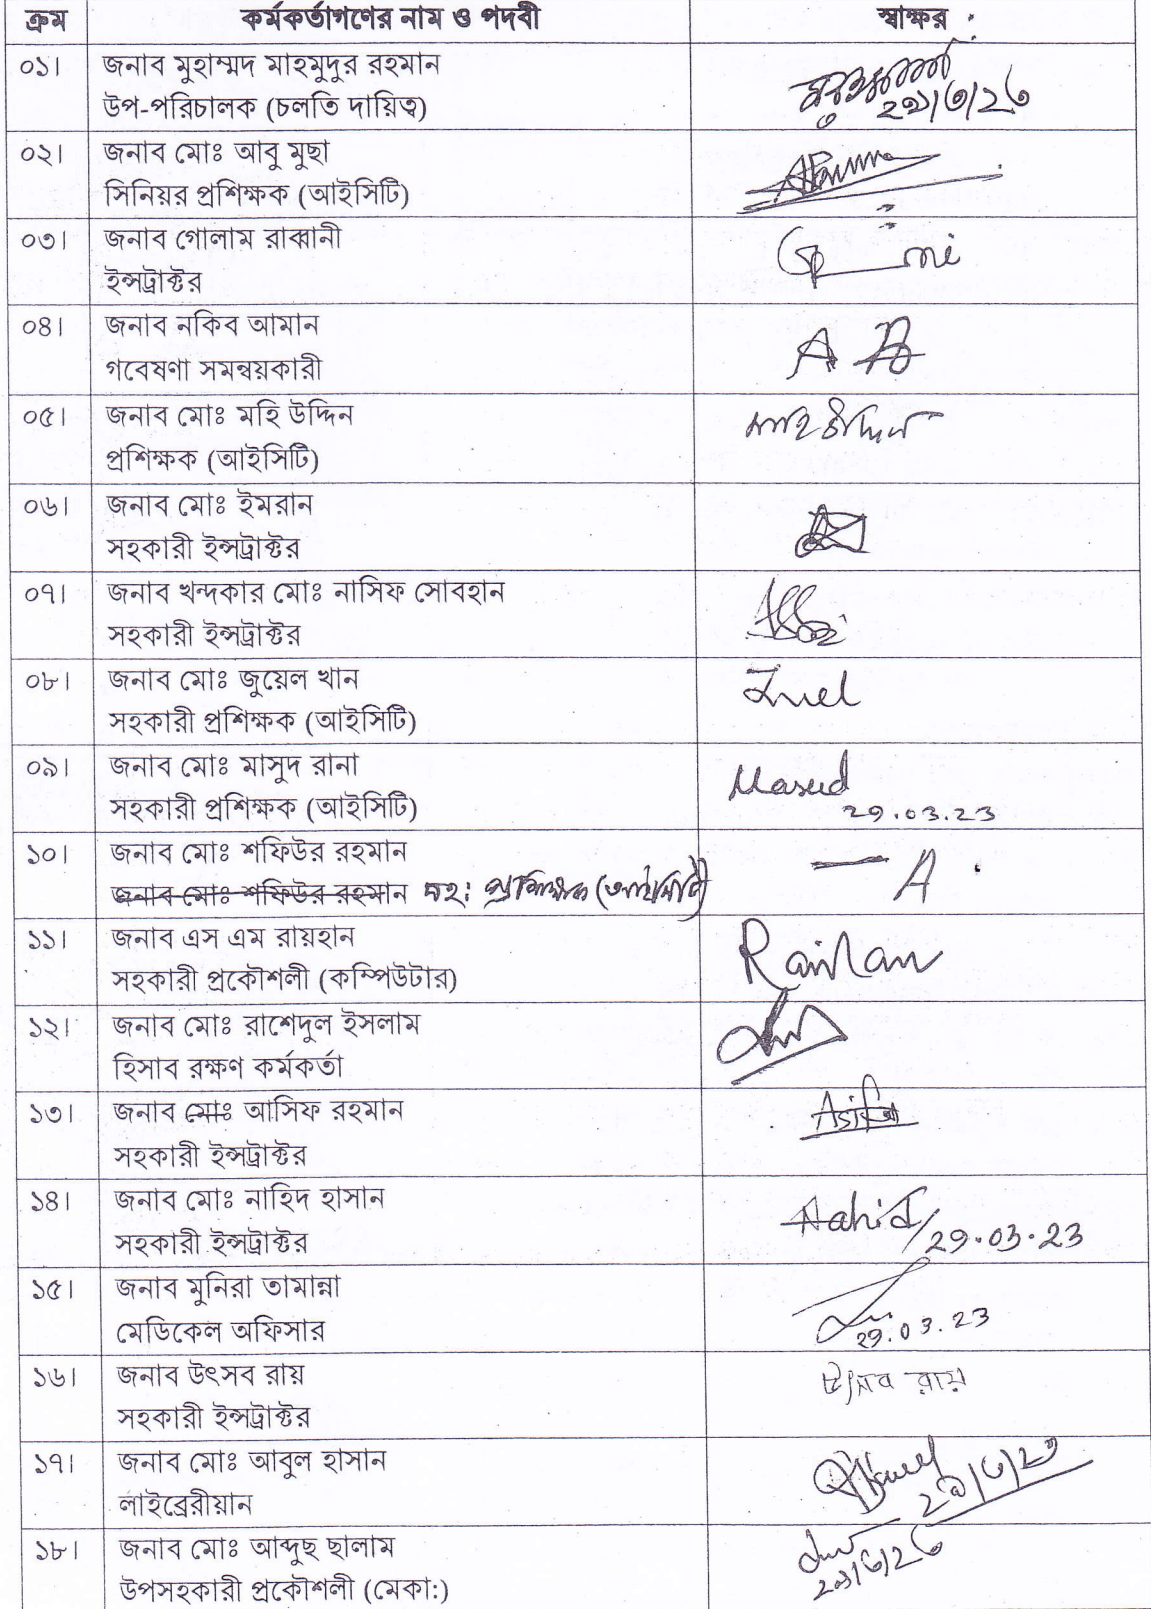 ক্রম কর্মকর্তাগণের নাম ও পদবী স্বাক্ষর
০১। জনাব মুহাম্মদ মাহমুদুর রহমান
উপ-পরিচালক (চলতি দায়িত্ব)
২৯/৩/২৩
০২। জনাব মোঃ আবু মুছা
সিনিয়র প্রশিক্ষক (আইসিটি)
০৩। জনাব গোলাম রাব্বানী
ইন্সট্রাক্টর
০৪। জনাব নকিব আমান
গবেষণা সমন্বয়কারী
০৫। জনাব মোঃ মহি উদ্দিন মহিউদ্দিন
প্রশিক্ষক (আইসিটি)
০৬। জনাব মোঃ ইমরান
সহকারী ইন্সট্রাক্টর
০৭। জনাব খন্দকার মোঃ নাসিফ সোবহান
সহকারী ইন্সট্রাক্টর
০৮। জনাব মোঃ জুয়েল খান Juel
সহকারী প্রশিক্ষক (আইসিটি)
০৯। জনাব মোঃ মাসুদ রানা Masud
সহকারী প্রশিক্ষক (আইসিটি) 29.03.23
১০। জনাব মোঃ শফিউর রহমান
জনাব মোঃ শফিউর রহমান সহ: প্রশিক্ষক (আইসিটি)
১১। জনাব এস এম রায়হান Raihan
সহকারী প্রকৌশলী (কম্পিউটার)
১২। জনাব মোঃ রাশেদুল ইসলাম
হিসাব রক্ষণ কর্মকর্তা
১৩। জনাব মোঃ আসিফ রহমান Asif
সহকারী ইন্সট্রাক্টর
১৪। জনাব মোঃ নাহিদ হাসান Nahid
সহকারী ইন্সট্রাক্টর 29.03.23
১৫। জনাব মুনিরা তামান্না
মেডিকেল অফিসার 29.03.23
১৬। জনাব উৎসব রায় উৎসব রায়
সহকারী ইন্সট্রাক্টর
১৭। জনাব মোঃ আবুল হাসান
লাইব্রেরীয়ান ২৯/৩/২৩
১৮। জনাব মোঃ আব্দুছ ছালাম
উপসহকারী প্রকৌশলী (মেকা:) ২৯/৩/২৩